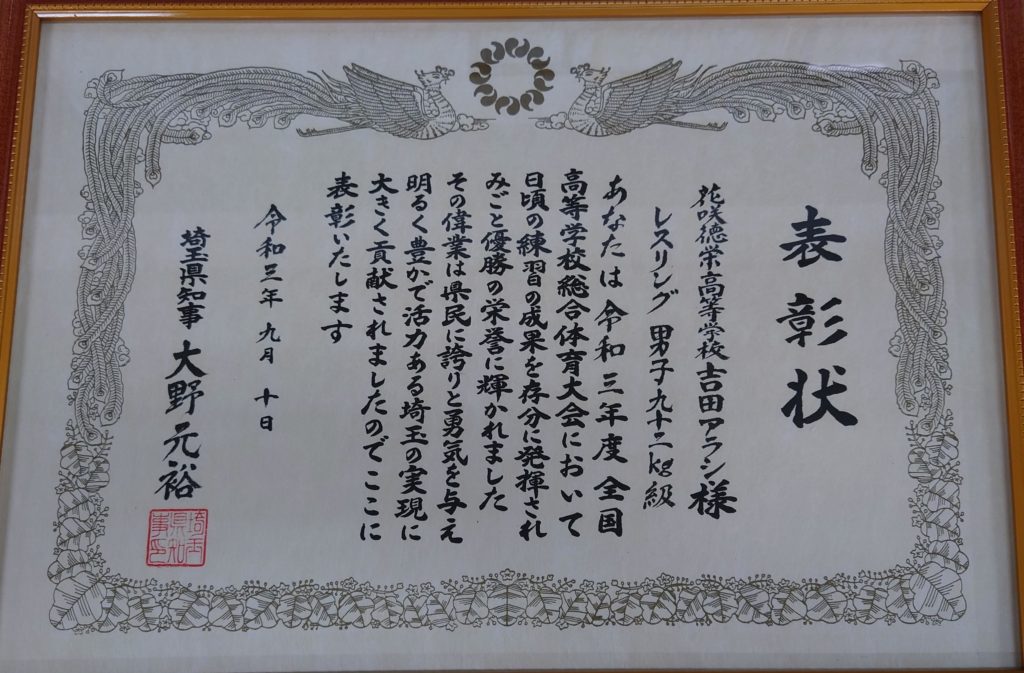 表彰状
花咲徳栄高等学校吉田アラシ様
レスリング 男子九十二kg級
あなたは令和三年度全国
高等学校総合体育大会において
日頃の練習の成果を存分に発揮され
みごと優勝の栄誉に輝かれました
その偉業は県民に誇りと勇気を与え
明るく豊かで活力ある埼玉の実現に
大きく貢献されましたのでここに
表彰いたします
令和三年 九月 十日
埼玉県知事 大野元裕
埼玉
県知
事印